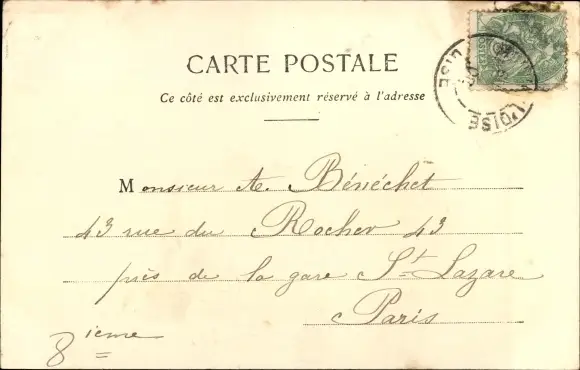 CARTE POSTALE
Ce côté est exclusivement réservé à l'adresse
OISE
L'OISE
Monsieur A. Bénéchet
43 rue du Rocher 43
près de la gare St Lazare
Paris
8ieme